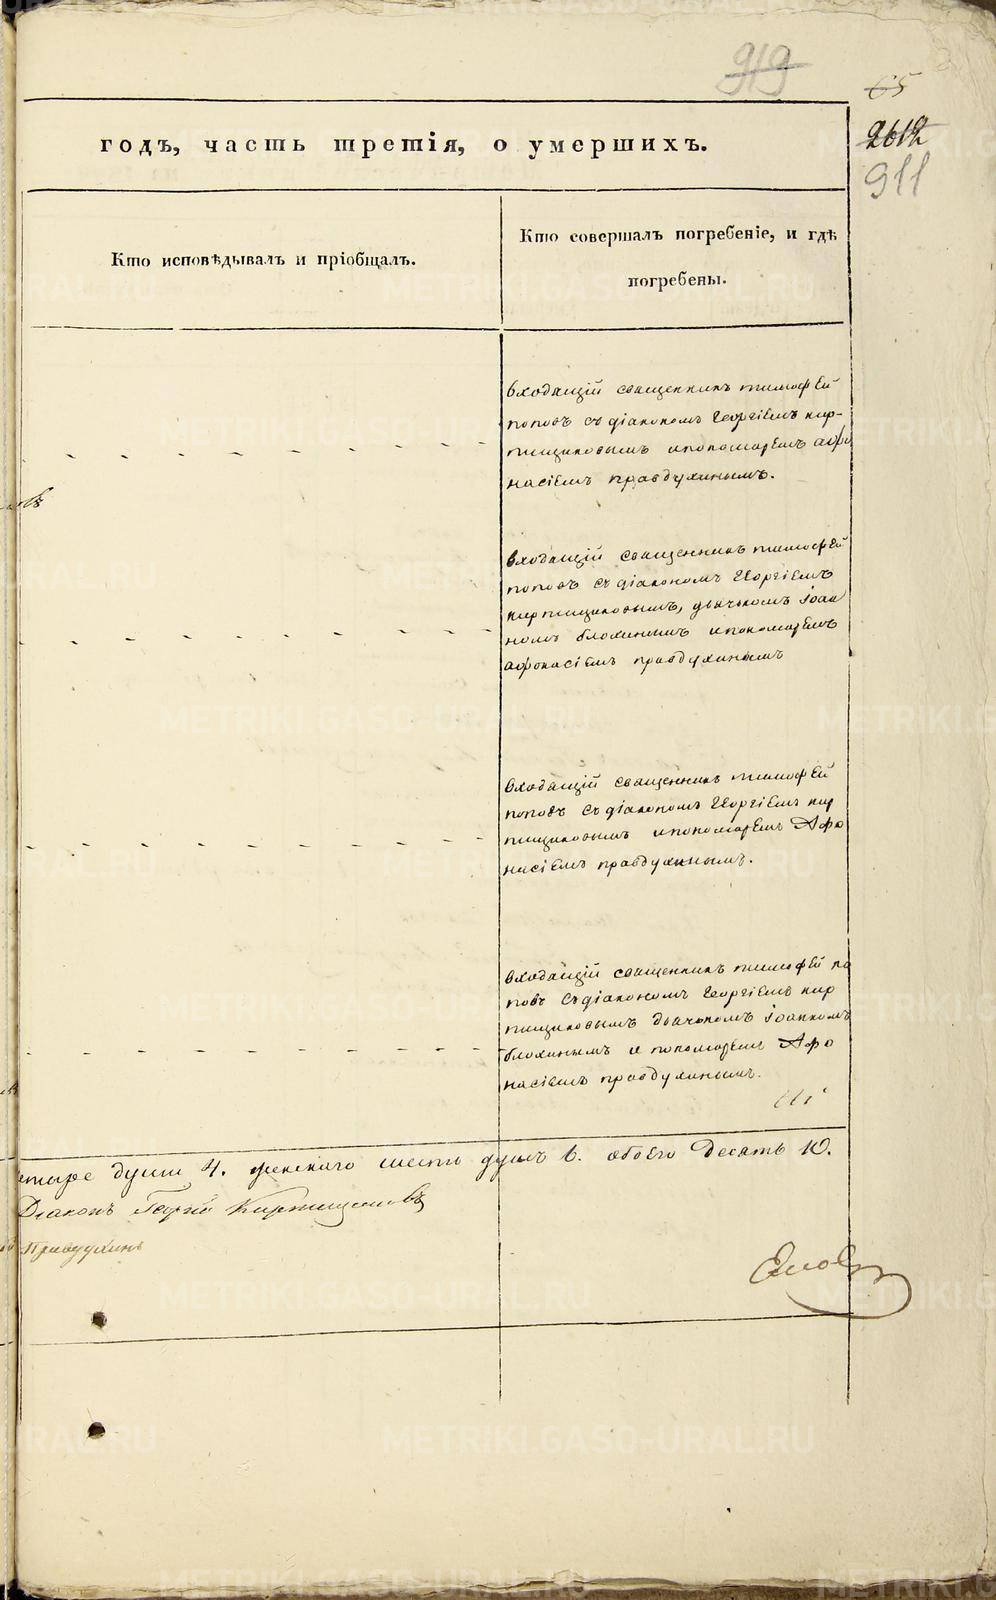 919
65
2612
911
годъ, часть третія, о умершихъ.
Кто исповѣдывалъ и пріобщалъ.
Кто совершалъ погребеніе, и гдѣ
погребены.
входящій священникъ тимофей
поповъ съ діакономъ Георгіемъ кир-
пищиковымъ и пономаремъ афо
насіемъ правдухинымъ.
входящій священникъ тимофей
поповъ съ діакономъ Георгіемъ
кирпищиковымъ, дьячкомъ Іоан
номъ блохинымъ и пономаремъ
афонасіемъ правдухинымъ
входящій священникъ тимофей
поповъ съ діакономъ Георгіемъ кир
пищиковымъ и пономаремъ Афо
насіемъ правдухинымъ.
входящій священникъ тимофей по
повъ съ діакономъ Георгіемъ кир
пищиковымъ дьячкомъ Іоанномъ
блохинымъ и пономаремъ Афо
насіемъ правдухинымъ.
етыре души 4. женскаго шесть душъ 6. обоего Десять 10.
Діаконъ Георгій Кирпищиковъ
Правдухинъ
METRIKI.GASO-URAL.RU